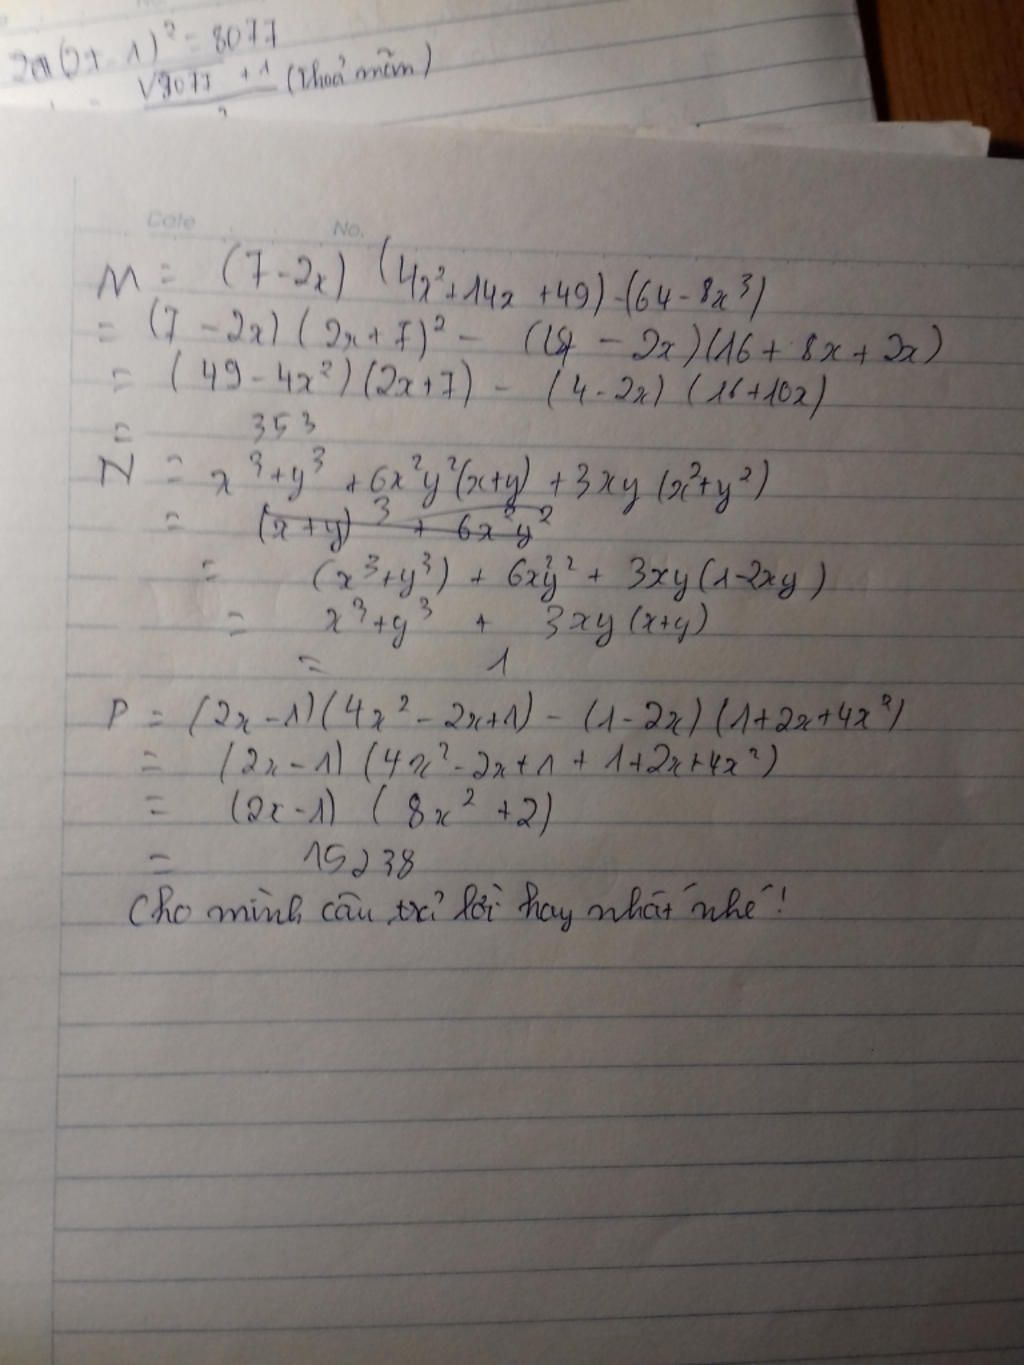 (2x - 1)² = 8077
√8077 + 1 (thoả mãn)
Date No.
M = (7-2x) (4x²+14x+49)-(64-8x³)
= (7-2x)(2x+7)² - (4-2x)(16+8x+2x)
= (49-4x²)(2x+7) - (4-2x) (16+10x)
= 353
N = x³+y³ +6x²y²(x+y) +3xy (x²+y²)
= (x+y)³ + 6x²y²
= (x³+y³) + 6x²y² + 3xy(1-2xy)
= x³+y³ + 3xy(x+y)
= 1
P = (2x-1)(4x²-2x+1) - (1-2x)(1+2x+4x²)
= (2x-1)(4x²-2x+1+1+2x+4x²)
= (2x-1) (8x²+2)
= 15238
Cho mình câu trả lời hay nhất nhé!